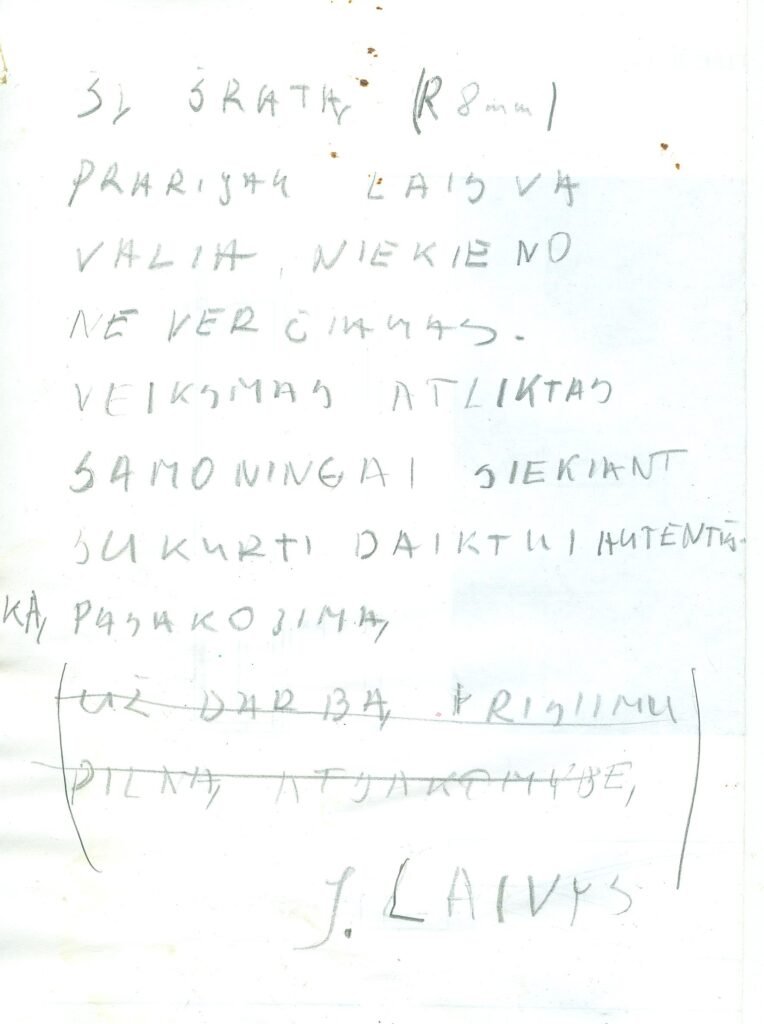 ŠĮ ŠRATĄ (R 8mm)
PRARIJAU LAISVA
VALIA, NIEKIENO
NE VERČIAMAS.
VEIKSMAS ATLIKTAS
SAMONINGAI SIEKIANT
SUKURTI DAIKTUI AUTENTIŠ-
KĄ PASAKOJIMĄ
(UŽ DARBĄ PRISIIMU
PILNĄ ATSAKOMYBĘ)
J. LAIVYS